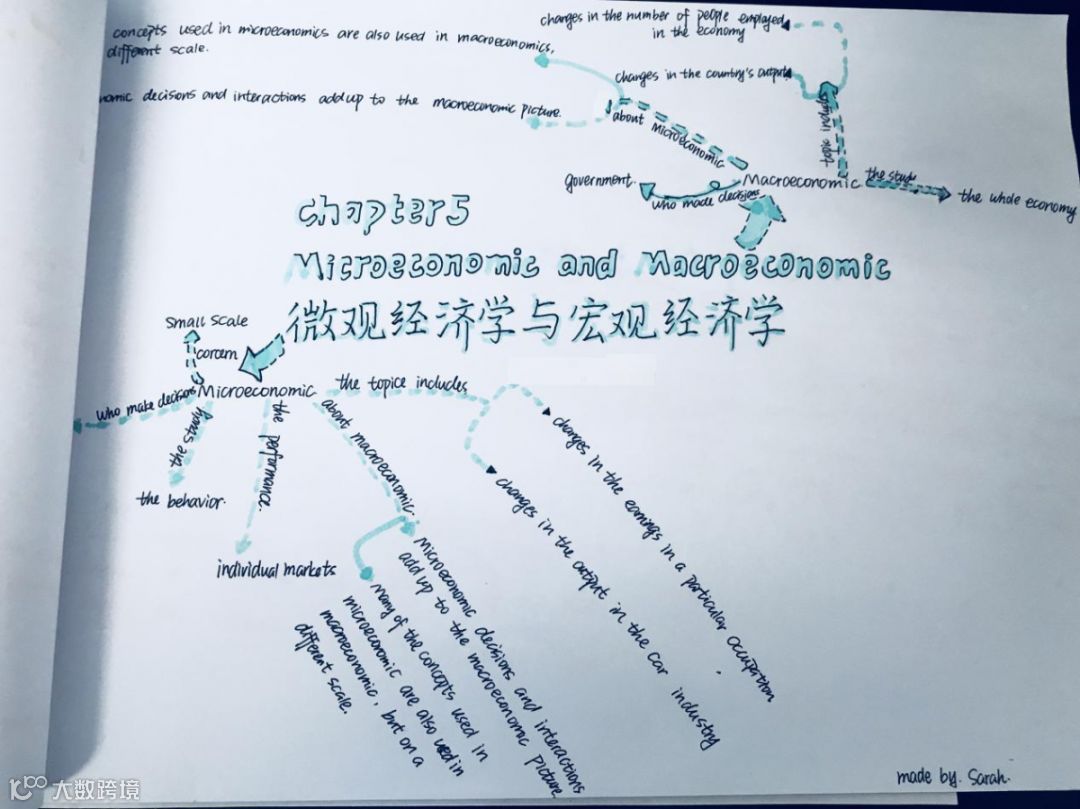 concepts used in microeconomics are also used in macroeconomics,
different scale.
nomic decisons and interactions add up to the macroeconomic picture.
changes in the number of people employed
in the economy
changes in the country's output
about Microeconomic
topic includ
Macroeconomic
the study
the whole economy
government.
who made decisions
chapter 5
Microeconomic and Macroeconomic
微观经济学与宏观经济学
small scale
corcern
Microeconomic
who make decisions
the study
the behavior.
the performance.
individual markets
the topice includes
changes in the earnings in a particular occupation
changes in the output in the car industry
about macroeconomic.
Microeconomic decisions and interactions
add up to the macroeconomic picture
Many of the concepts used in
microeconomic are also used in
macroeconomic, but on a
different scale.
made by. Sarah.
大数跨境